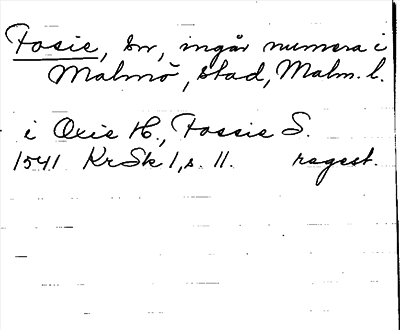 Fosie, sn, ingår numera i
Malmö, stad, Malm. l.
i Oxie H., Fossie S.
1541 KrSk 1, s. 11. ragest.